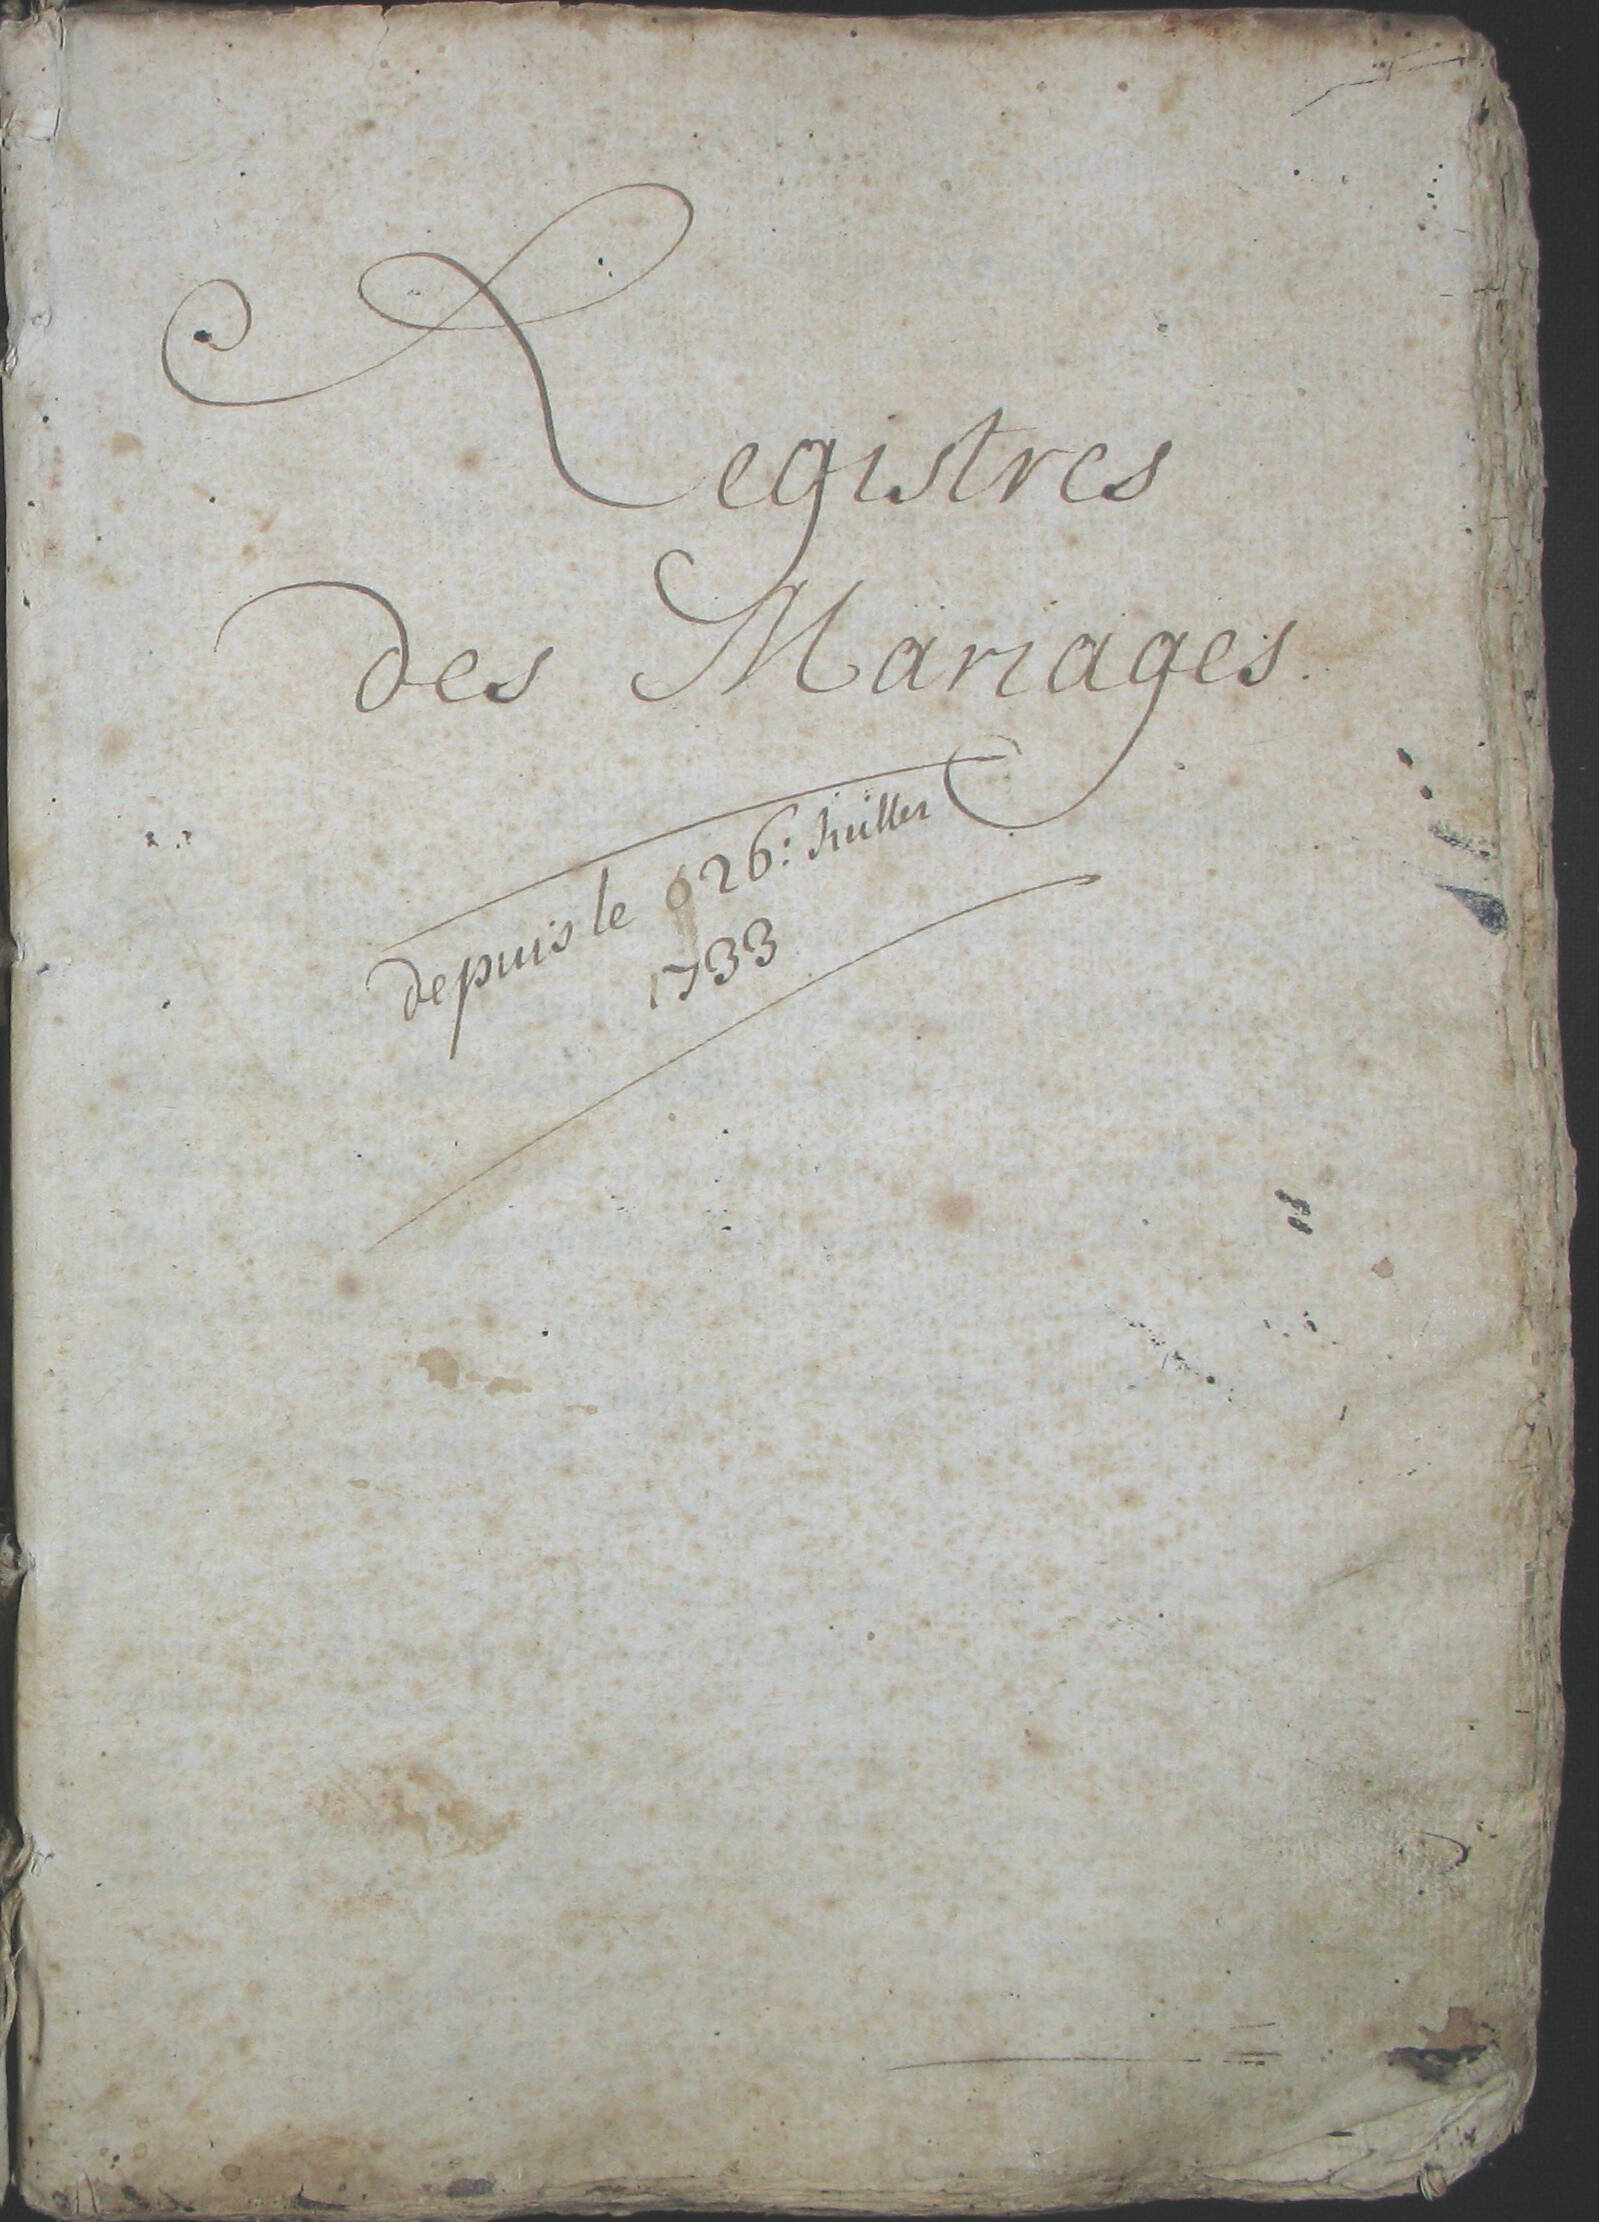 Registres
des Mariages.
depuis le 26: Juillet
1733